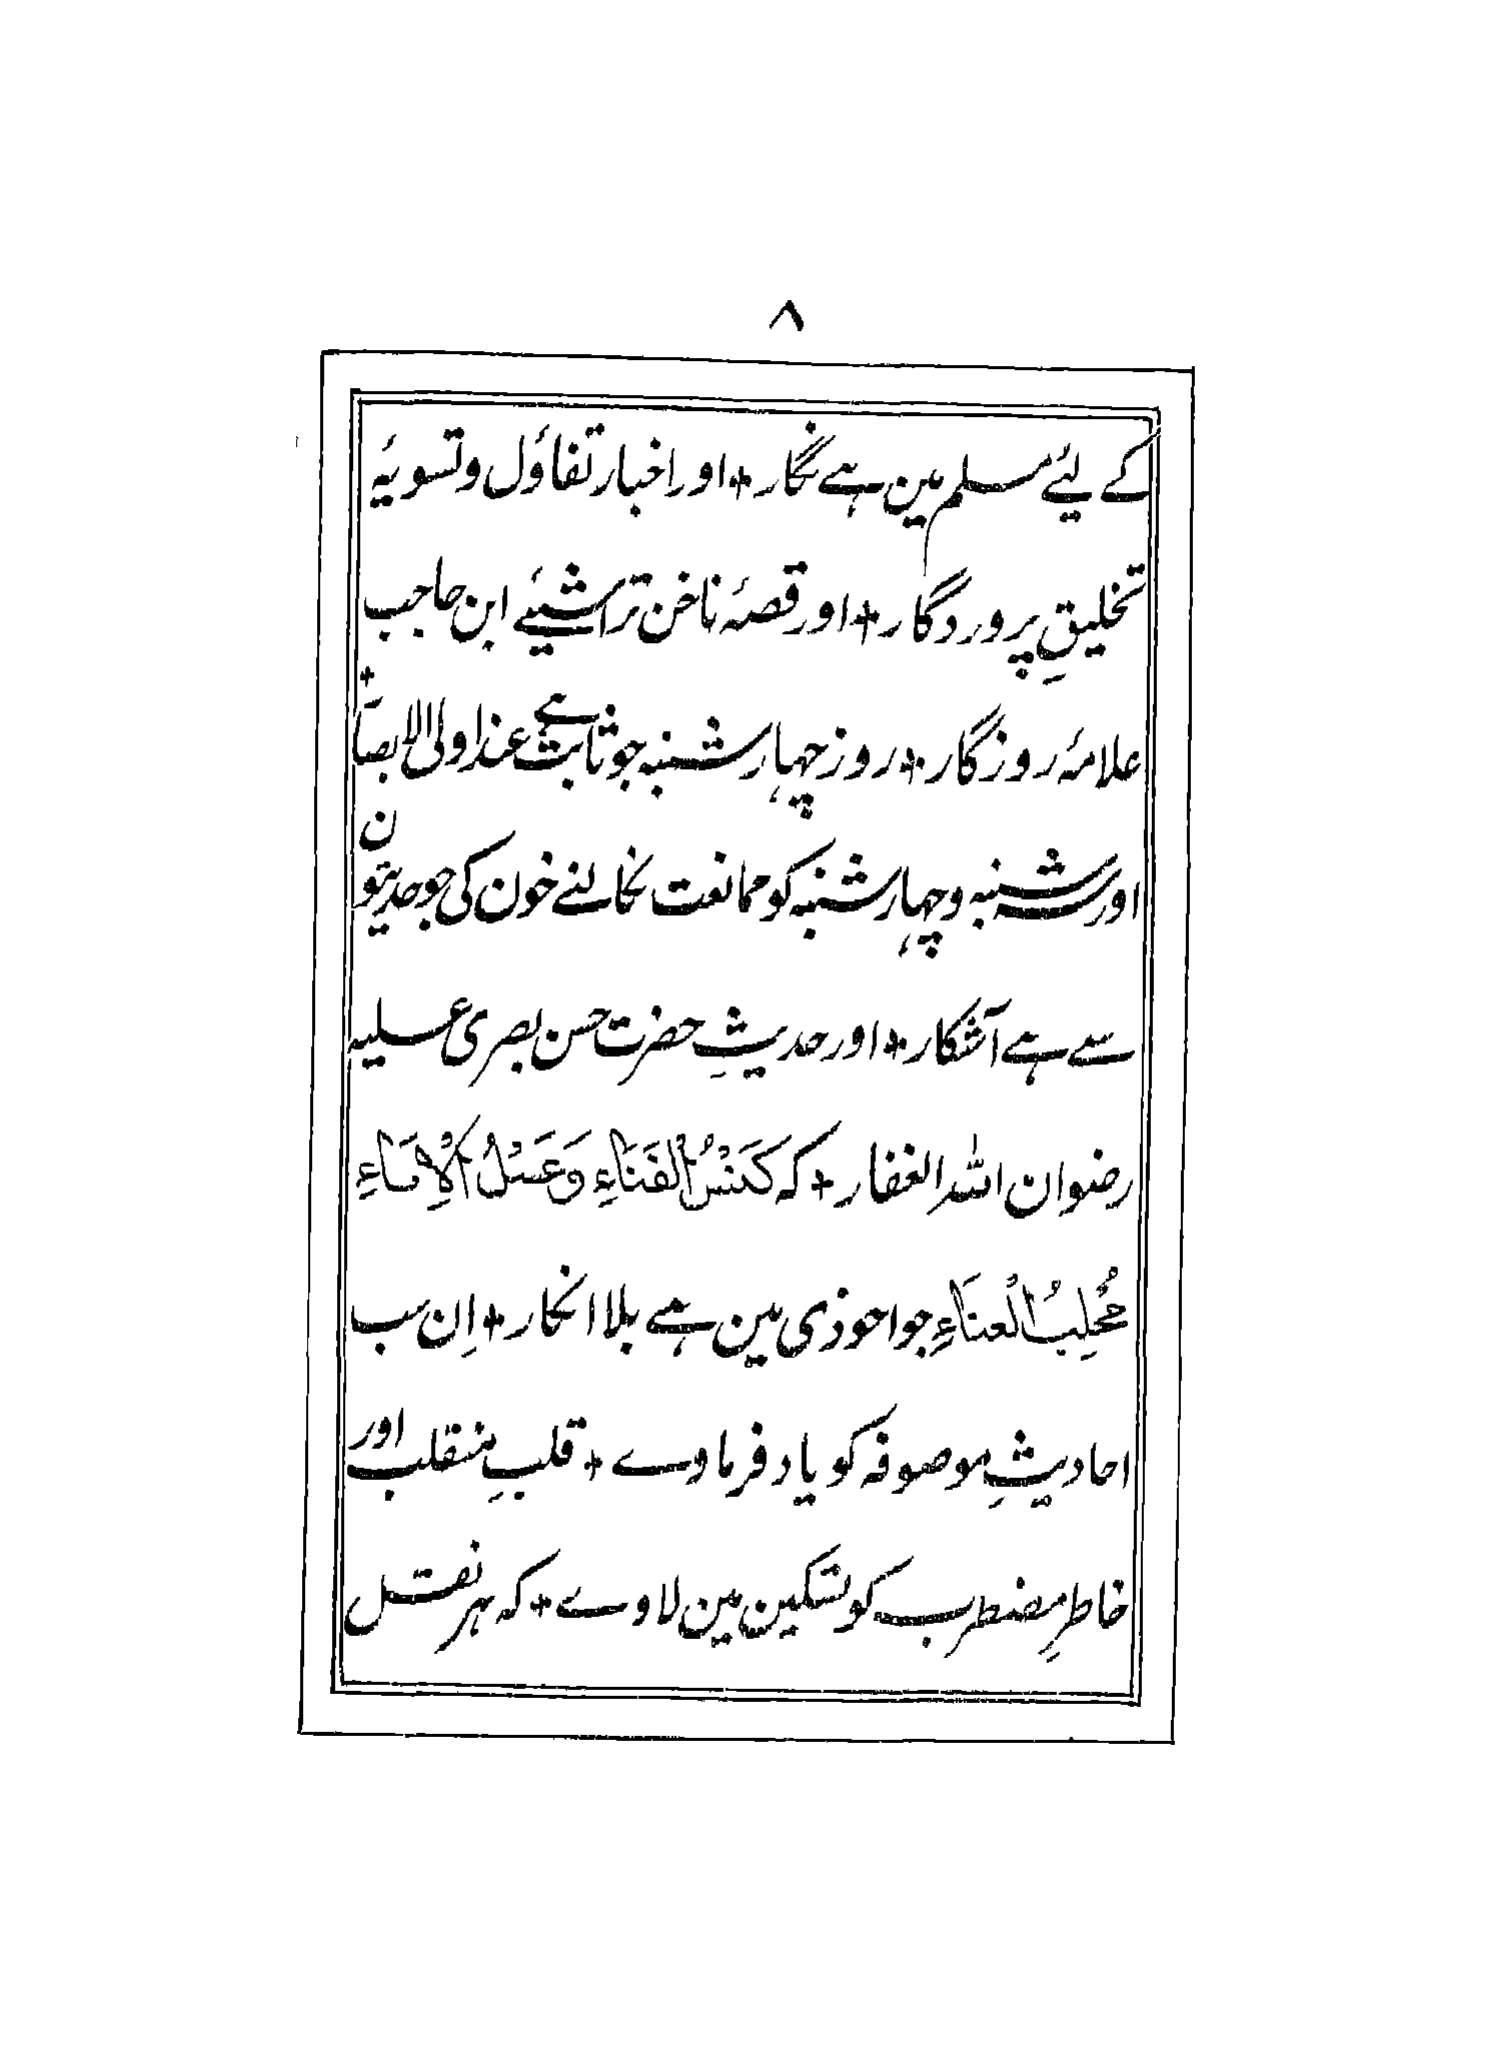 ۸
کے لیے مسلم مین ہے نگار + اور اخبار تفاؤل و تسویۂ
تخلیقِ پروردگار + اور قصۂ ناخن تراشیٔے ابن حاجب
علامۂ روزگار + روز چہار شنبہ جو ثابت ہے عند اولی الابصار +
اور سہ شنبہ و چہار شنبہ کو ممانعت نکالنے خون کی جو حدیثون
سے ہے آشکار + اور حدیثِ حضرت حسن بصری علیہ
رضوان اللہ الغفار + کہ کَنْسُ الْفَنَاءِ وَغَسْلُ الْاِنَاءِ
مُجْلِبُ الْغَنَاءِ جو احوذی مین ہے بلا انکار + اِن سب
احادیثِ موصوفہ کو یاد فرماوے + قلبِ منقلب اور
خاطرِ مضطرب کو تسکین مین لاوے + کہ ہر نقل